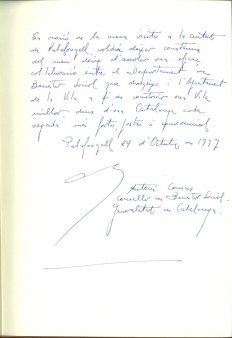 En ocasió de la meva visita a la ciutat
de Palafrugell voldria deixar constància
del meu desig d'assolir una eficaç
col·laboració entre el Departament de
Benestar Social que dirigeixo i l'Ajuntament
de la Vila, a fi de construir una Vila
millor, dins d'una Catalunya cada
vegada més forta, justa i
Palafrugell 24 d'Octubre de 1997
Antoni Comas
Conseller de Benestar Social
Generalitat de Catalunya